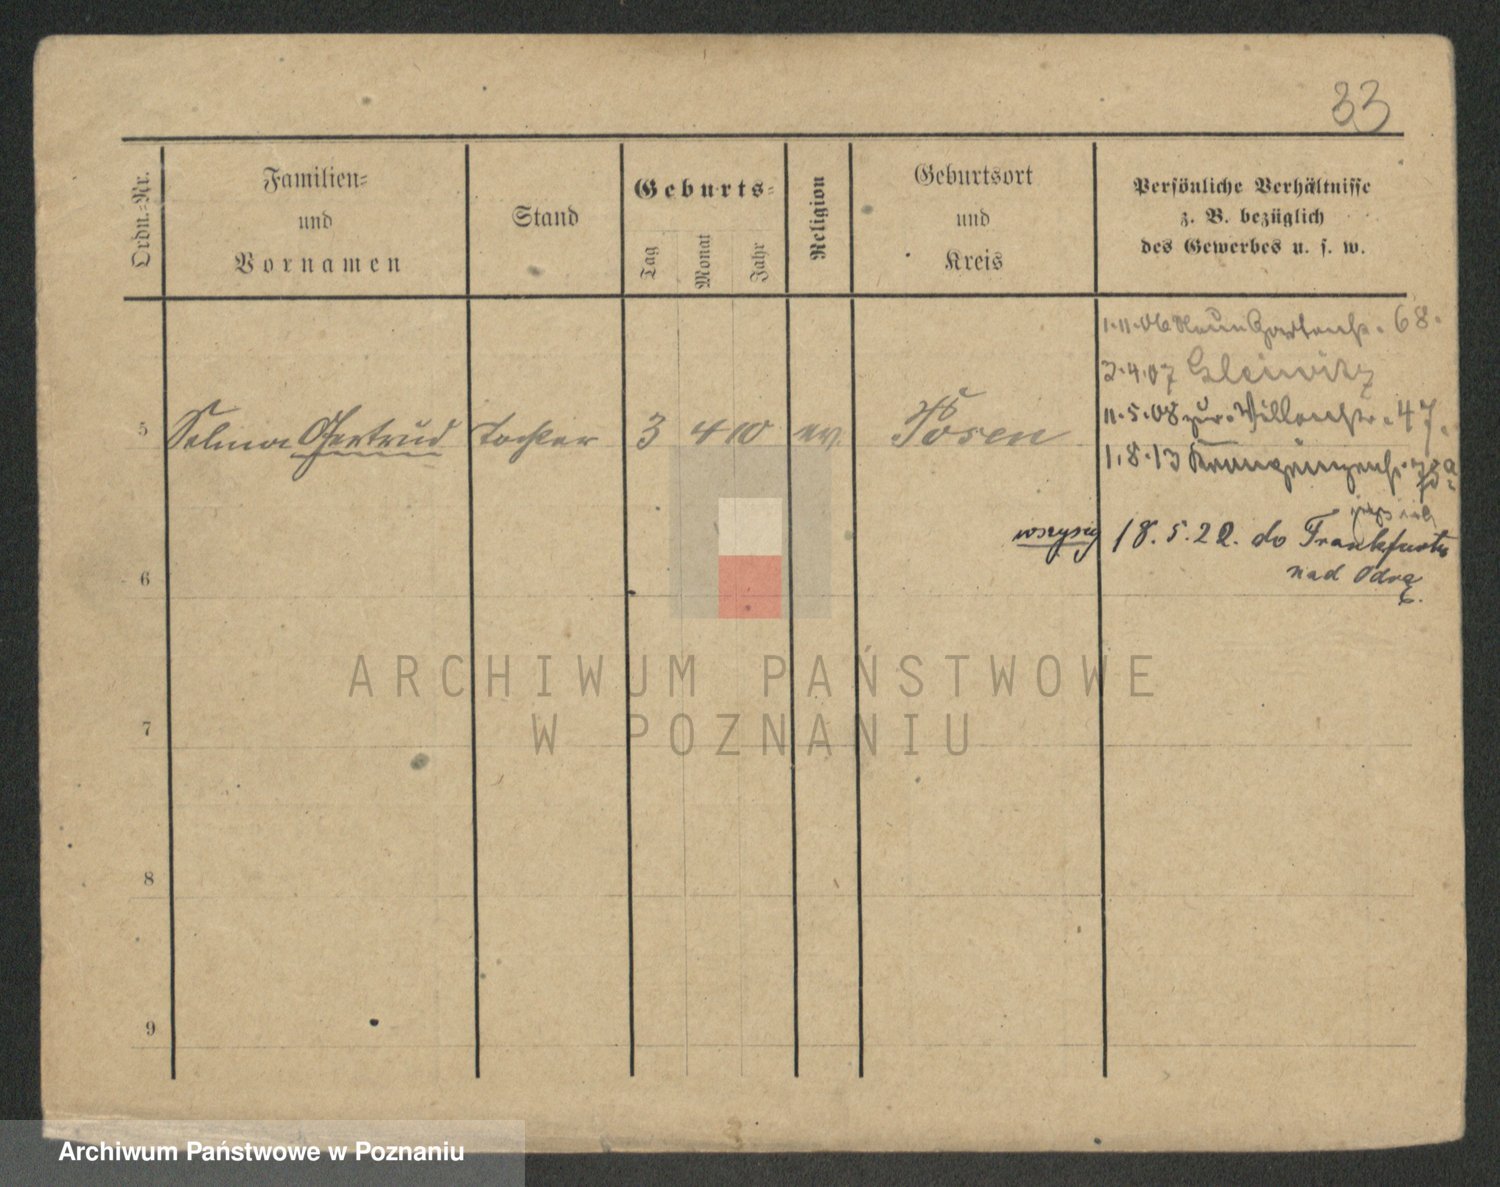 33
Ordn.-Nr.
Familien-
und
Vornamen
Stand
Geburts-
Tag
Monat
Jahr
Religion
Geburtsort
und
Kreis
Persönliche Verhältnisse
z. B. bezüglich
des Gewerbes u. s. w.
1.11.06 68.
2.4.07 Gleiwitz
11.5.08 47.
5 Selma Gertrud Tochter 3 4 10 ev. Posen
1.8.13
wszyscy 18.5.22. do Frankfurtu
nad Odrą.
6
7
8
9
ARCHIWUM PAŃSTWOWE
W POZNANIU
Archiwum Państwowe w Poznaniu